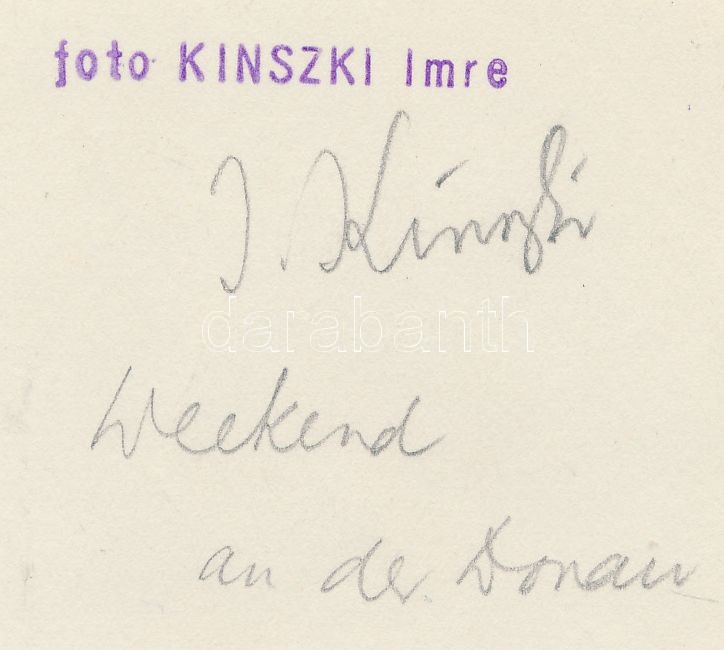 foto KINSZKI Imre
I. Kinszki
darabanth
Weekend
an der Donau